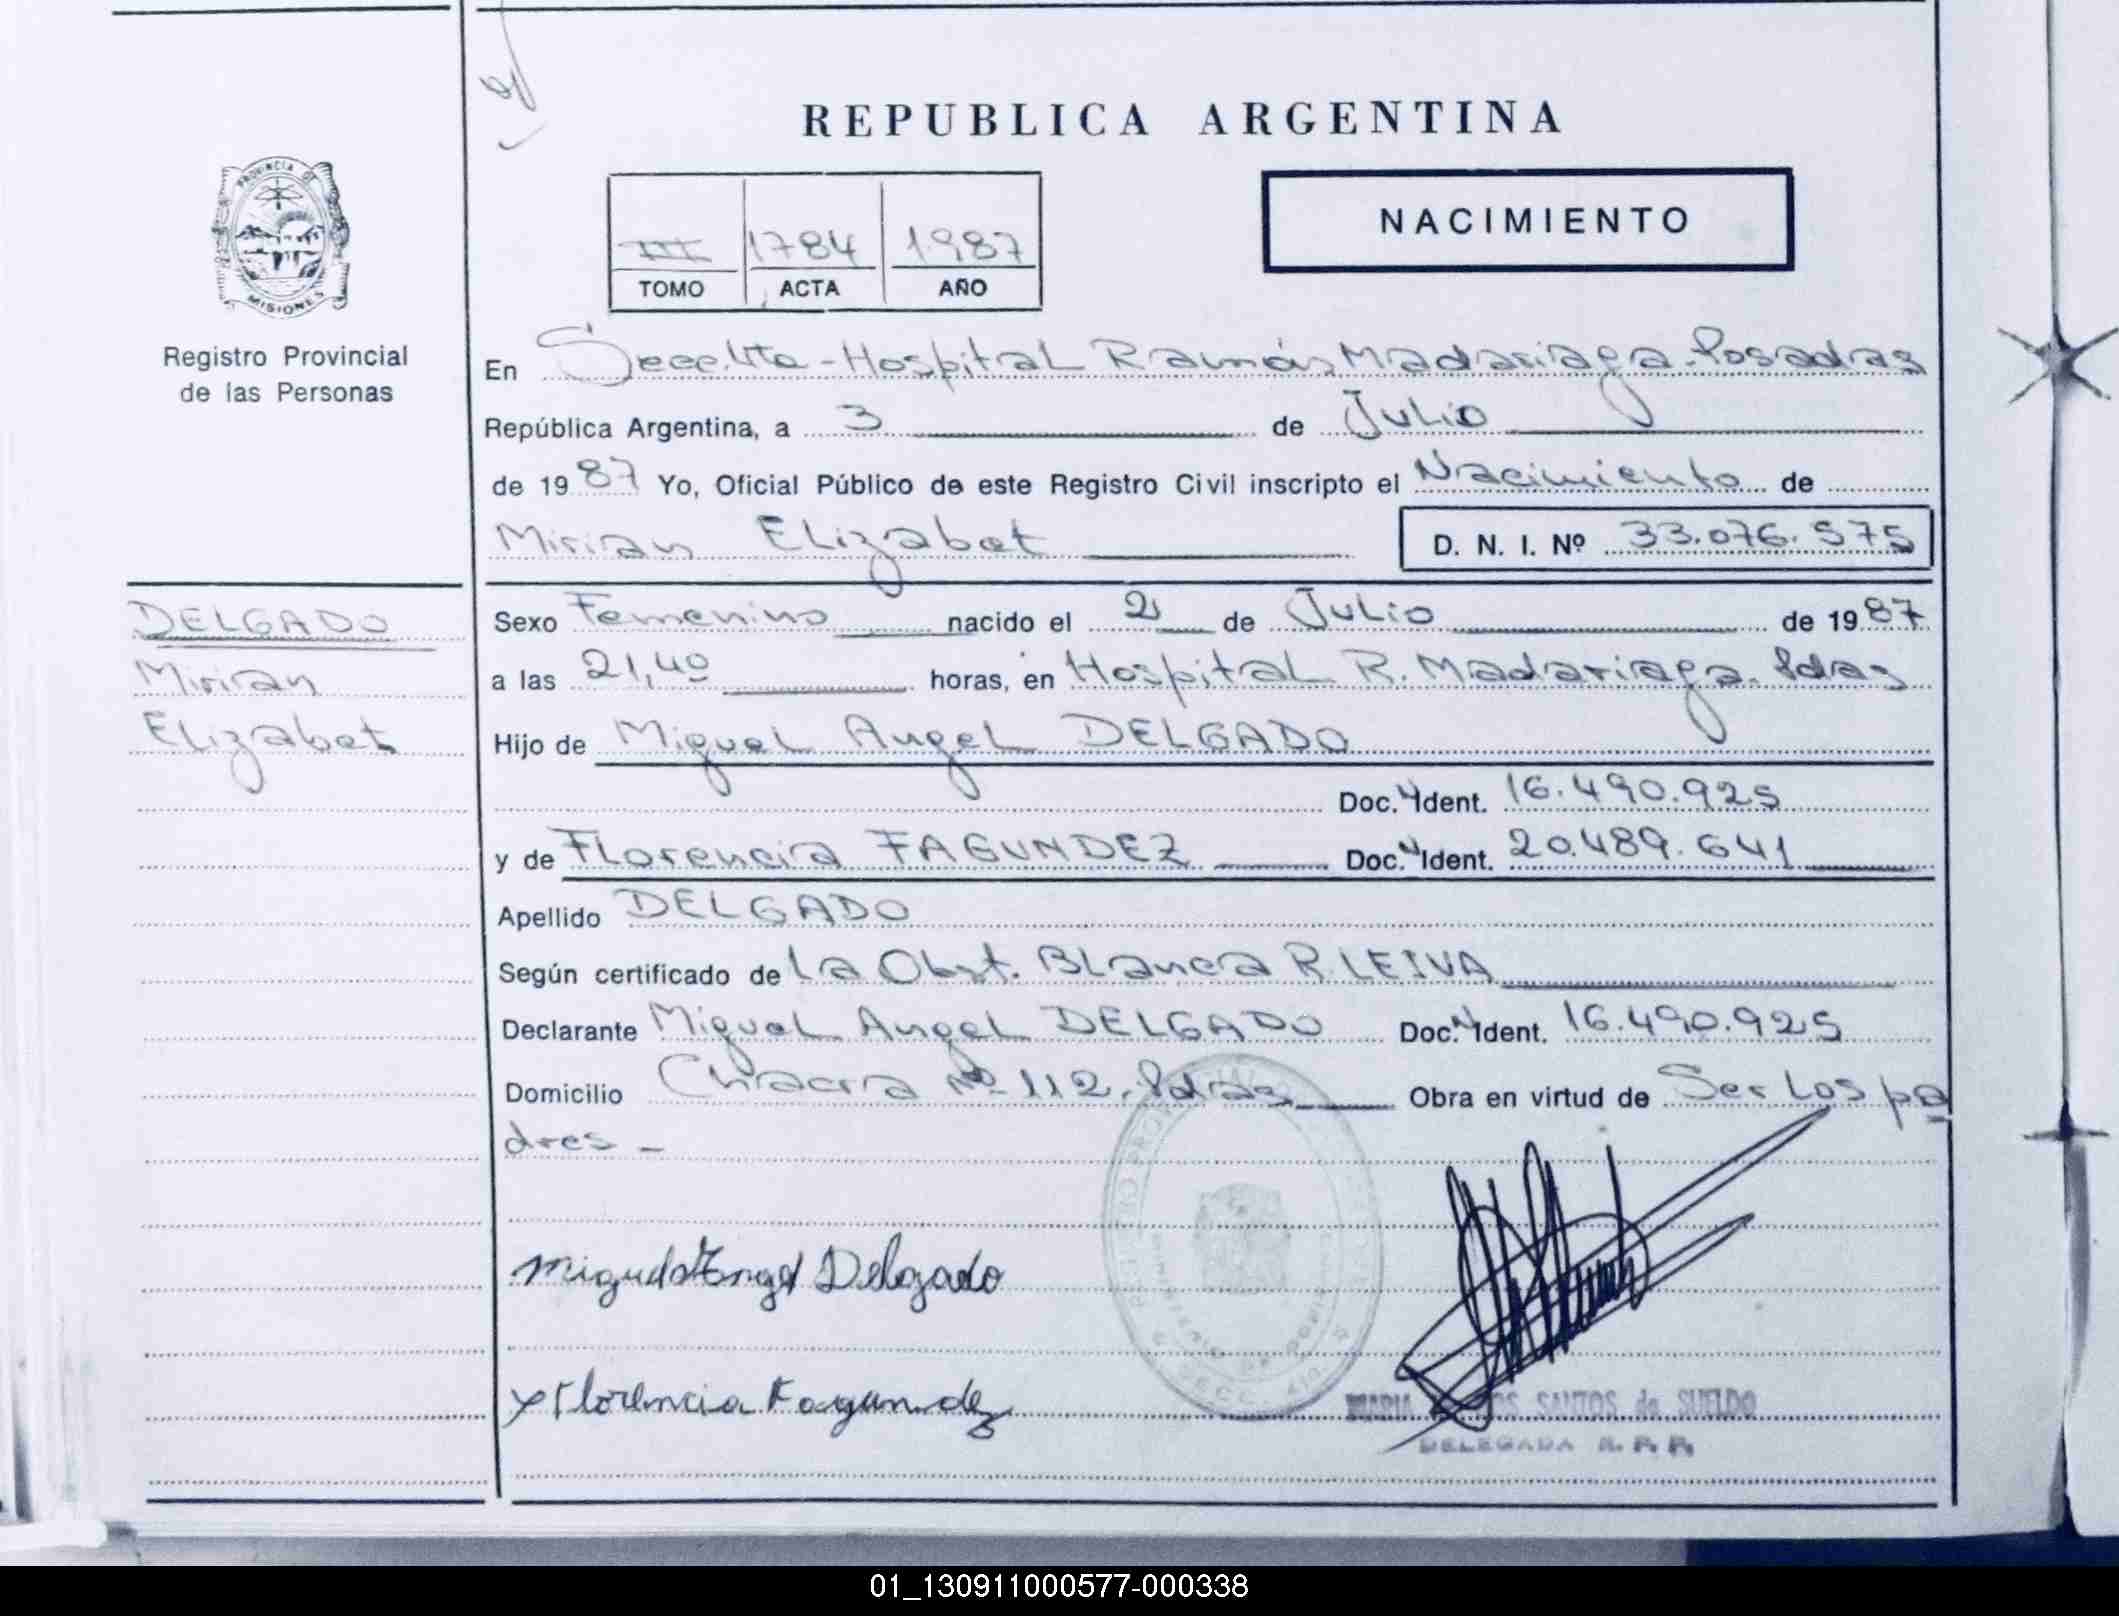 REPUBLICA ARGENTINA
PROVINCIA DE MISIONES
Registro Provincial
de las Personas
III 1784 1987
TOMO ACTA AÑO
NACIMIENTO
En Secc. 4ta - Hospital Ramón Madariaga. Posadas
República Argentina, a 3 de Julio
de 1987 Yo, Oficial Público de este Registro Civil inscripto el Nacimiento de
Mirian Elizabet D. N. I. Nº 33.076.575
DELGADO
Mirian
Elizabet
Sexo Femenino nacido el 2 de Julio de 1987
a las 21,40 horas, en Hospital R. Madariaga. Pdas
Hijo de Miguel Angel DELGADO
Doc. Ident. 16.490.925
y de Florencia FAGUNDEZ Doc. Ident. 20.489.641
Apellido DELGADO
Según certificado de La Obst. Blanca R. LEIVA
Declarante Miguel Angel DELGADO Doc. Ident. 16.490.925
Domicilio Chacra Nº 112. Pdas Obra en virtud de Ser Los pa
dres -
Miguel Angel Delgado
x Florencia Fagundez
MARIA SANTOS de SUELDO
DELEGADA R. P. P.
01_130911000577-000338